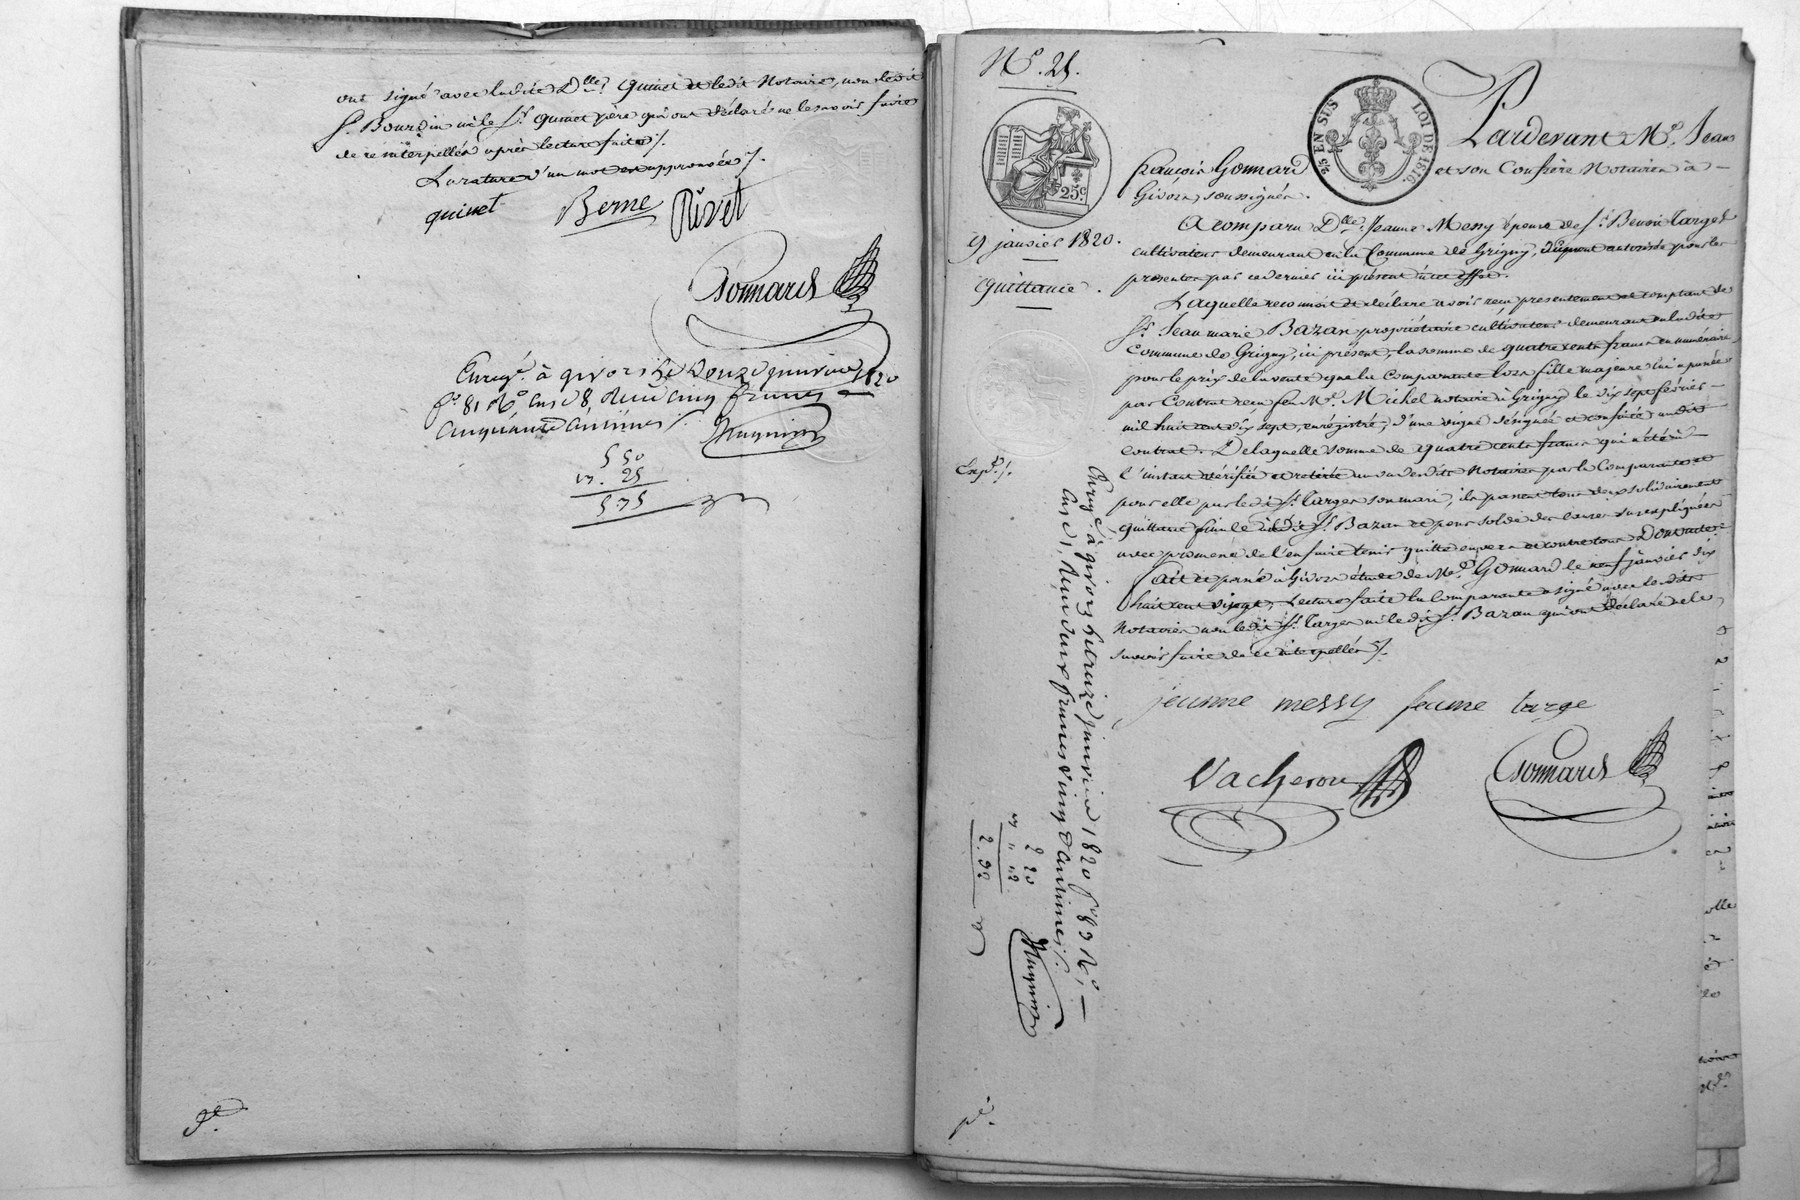 ont signé avec ladite D.lle Quinet et ledit Notaire, non ledit
S.r Bourdin ni le S.r Quinet père qui ont déclaré ne le savoir faire
de ce interpellés après lecture faite ./.
La rature d'un mot est approuvée ./.
quinet Berne Rivet
Gonnard
Enreg.é à givors le Douze janvier 1820
f.o 81 R.o Case 8, Reçu cinq francs
cinquante centimes
5 50
25
5.75
N.o 25.
25 EN SUS LOI DE 1816
25c.
Pardevant M.e Jean
françois Gonnard et son Confrère Notaires à
Givors, soussignés.
9 janvier 1820.
Quittance.
A comparu D.lle Jeanne Messy épouse de S.r Benoit Targe
cultivateur demeurant en la Commune de Grigny, dûment autorisée pour les
présentes par ce dernier ici présent à cet effet.
Laquelle reconnoit et déclare avoir reçu présentement et comptant de
S.r Jean marie Bazan propriétaire cultivateur demeurant en ladite
Commune de Grigny, ici présent, la somme de quatre cents francs en numéraire,
pour le prix de la vente que la Comparante lors fille majeure lui a passée
par Contrat reçu feu M.e Michel notaire à Grigny le dix sept février
mil huit cent dix sept, enregistré, d'une vigne désignée et confinée audit
contrat. De laquelle somme de quatre cents francs qui a été à
l'instant vérifiée et retirée au vu desdits Notaires par la Comparante et
Exp.é ./.
pour elle par ledit S.r Targe son mari, ils passent tous deux solidairement
quittance finale audit S.r Bazan et pour solde des causes susexpliquées
avec promesse de l'en faire tenir quitte envers et contre tous. Dont acte.
Fait et passé à Givors étude de M.e Gonnard le neuf janvier dix
huit cent vingt, Lecture faite la comparante a signé avec lesdits
Notaires non ledit S.r Targe ni ledit S.r Bazan qui ont déclaré ne le
savoir faire de ce interpellés ./.
jeanne messy feme targe
Vacheron Gonnard
Enreg.é à givors le treize janvier 1820 f.o 83 R.o
Case 1, Reçu deux francs vingt centimes
2 20
22
2.42